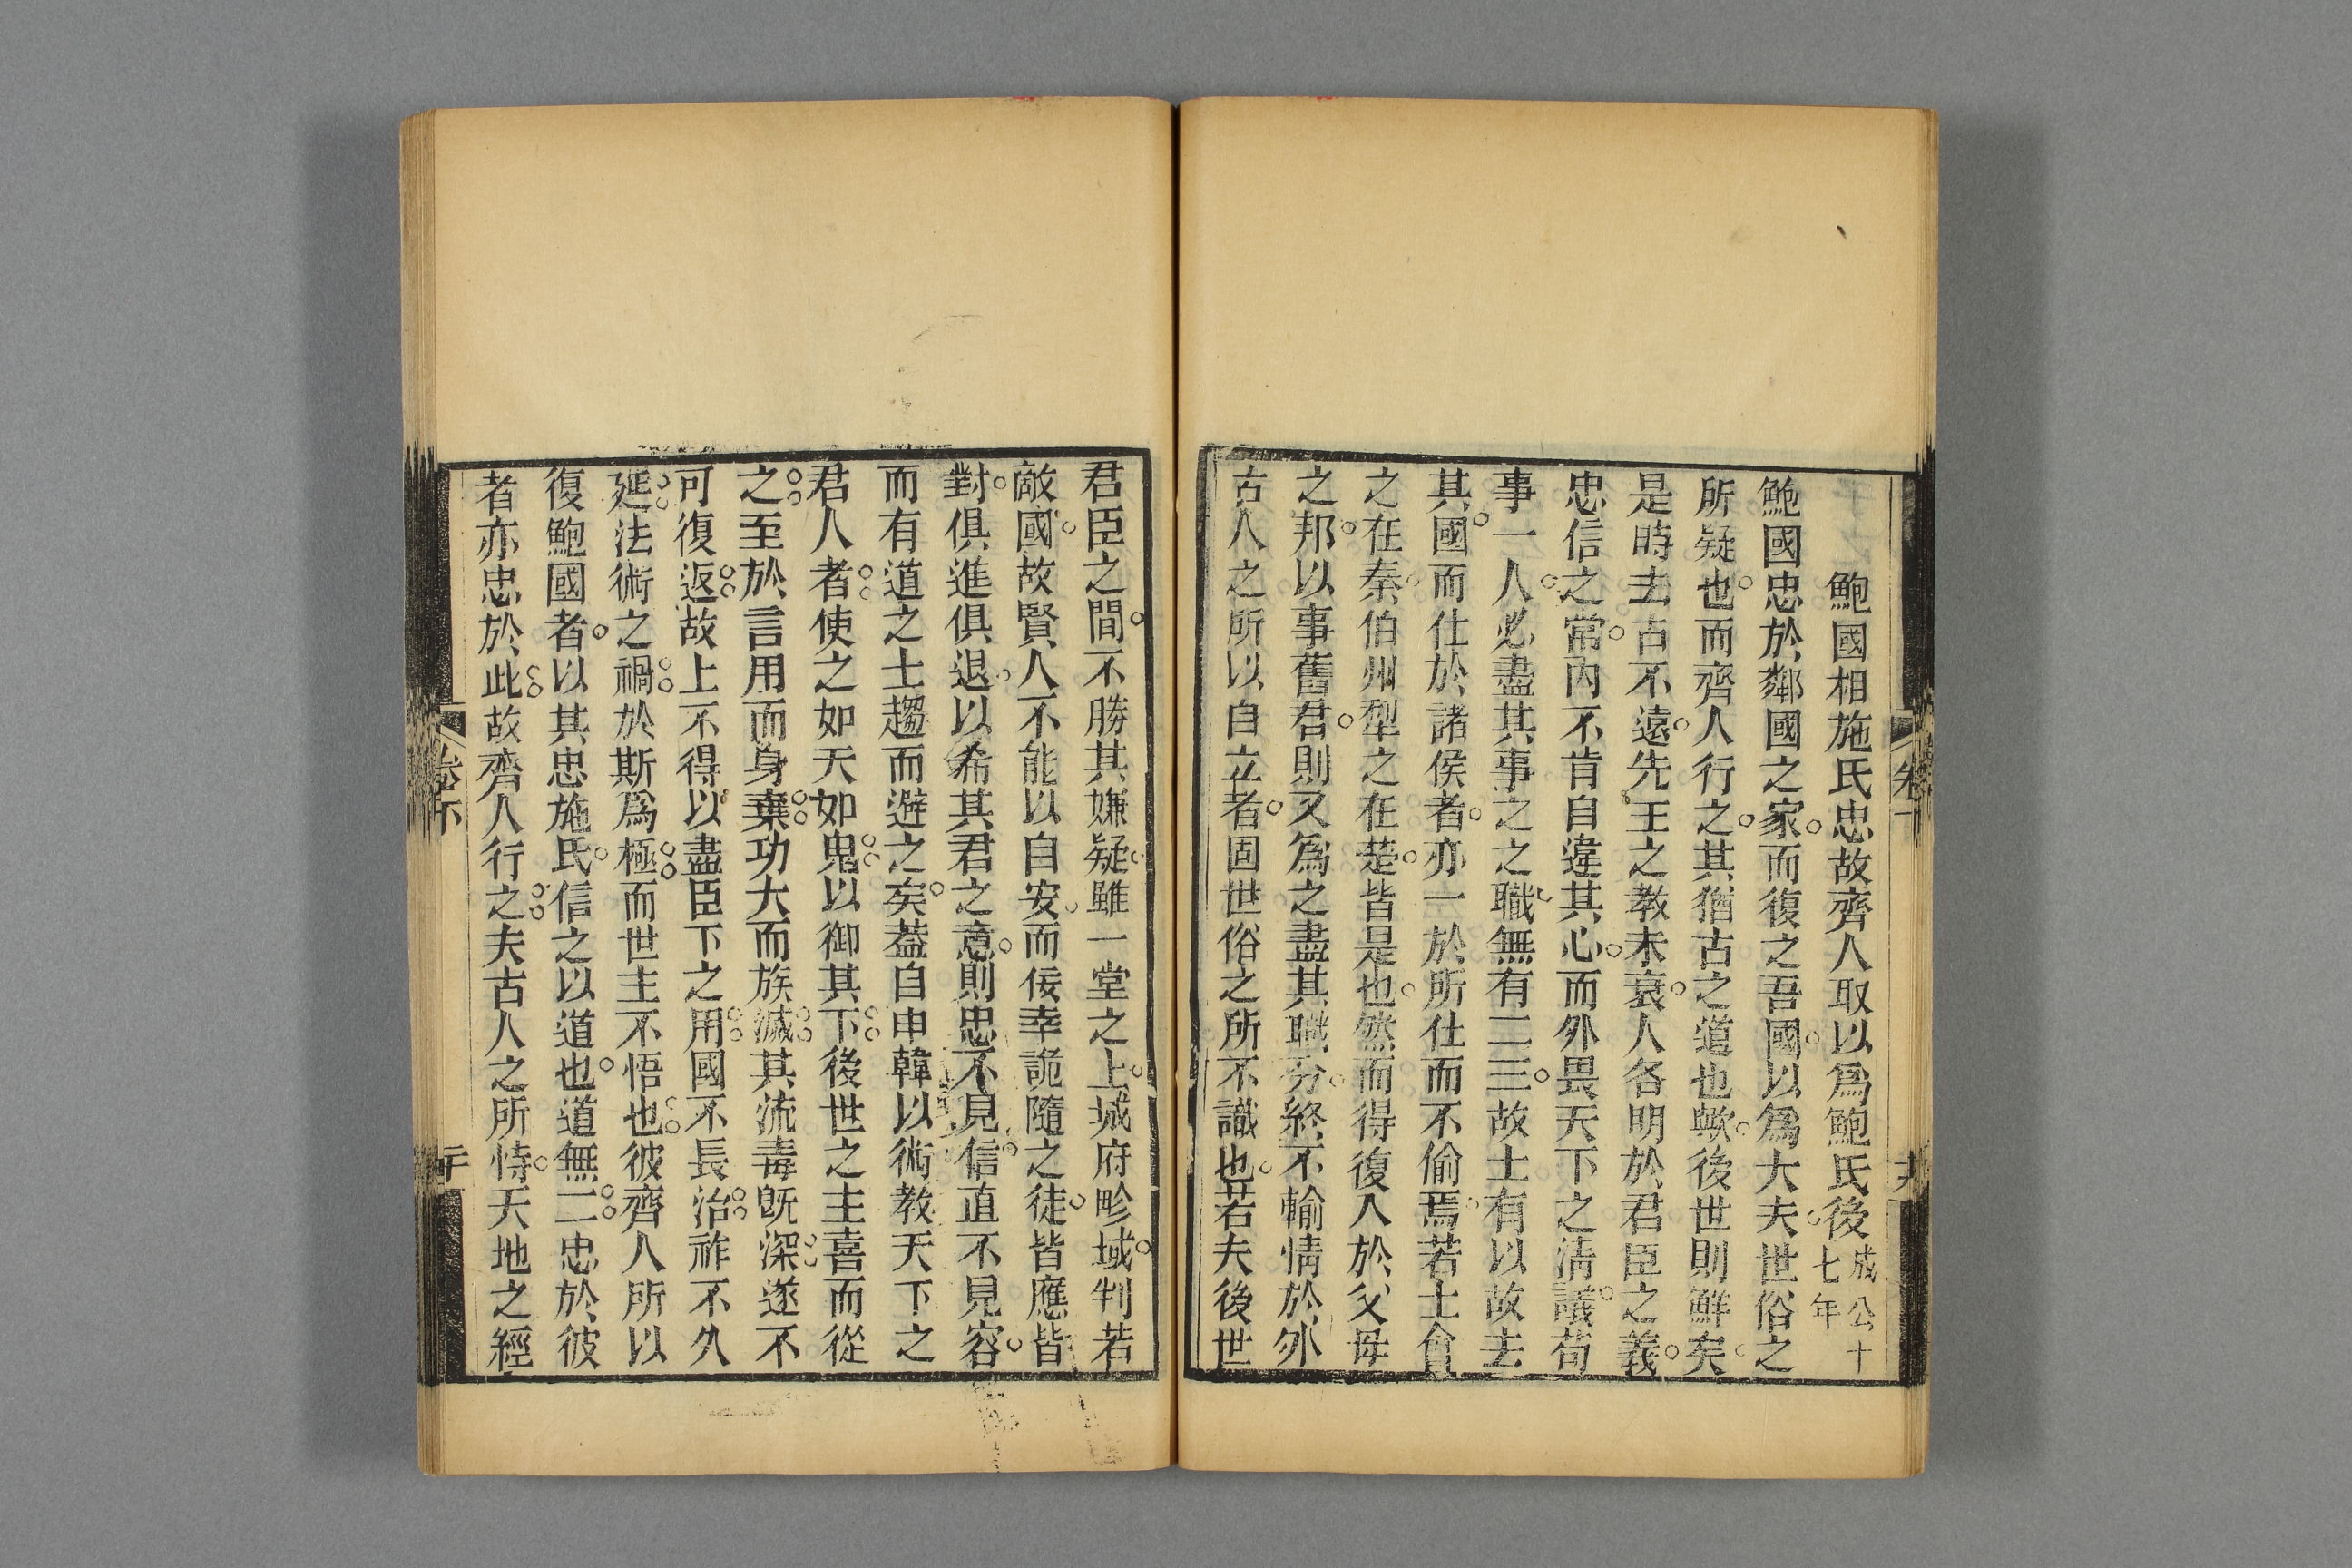 鮑國相施氏忠故齊人取以爲鮑氏後成公十七年
鮑國忠於鄰國之家而復之吾國以爲大夫世俗之
所疑也而齊人行之其猶古之道也歟後世則鮮矣
是時去古不遠先王之教未衰人各明於君臣之義
忠信之常內不肯自違其心而外畏天下之清議苟
事一人必盡其事之之職無有二三故士有以故去
其國而仕於諸侯者亦一於所仕而不偷焉若士會
之在秦伯州犁之在楚皆是也然而得復入於父母
之邦以事舊君則又爲之盡其職分終不輸情於外
古人之所以自立者固世俗之所不識也若夫後世
君臣之間不勝其嫌疑雖一堂之上城府畛域判若
敵國故賢人不能以自安而佞幸詭隨之徒皆應皆
對俱進俱退以希其君之意則忠不見信直不見容
而有道之士趨而避之矣葢自申韓以術教天下之
君人者使之如天如鬼以御其下後世之主喜而從
之至於言用而身棄功大而族滅其流毒旣深遂不
可復返故上不得以盡臣下之用國不長治祚不久
延法術之禍於斯爲極而世主不悟也彼齊人所以
復鮑國者以其忠施氏信之以道也道無二忠於彼
者亦忠於此故齊人行之夫古人之所恃天地之經